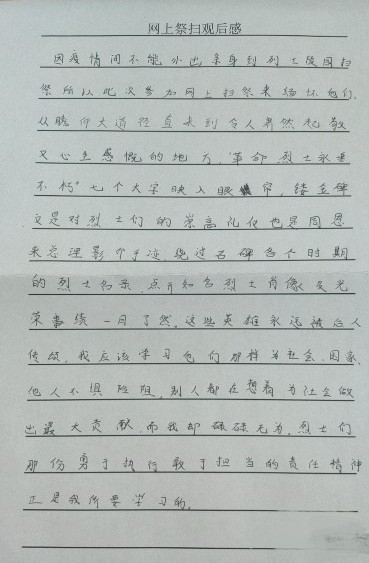 网上祭扫观后感
因疫情间不能外出亲身到烈士陵园扫
祭所以此次参加网上扫祭来缅怀他们.
从瞻仰大道径直来到令人肃然起敬
又心生感慨的地方,"革命烈士永垂
不朽"七个大字映入眼帘,镂金碑
文是对烈士们的崇高礼仪也是周恩
来总理影个手迹绕过石碑各个时期
的烈士名录,点开知名烈士肖像及光
荣事绩一目了然,这些英雄永远被后人
传颂,我应该学习他们那样为社会.国家.
他人不惧险阻,别人都在想着为社会做
出最大贡献,而我却碌碌无为,烈士们
那份勇于执行敢于担当的责任精神
正是我所要学习的.